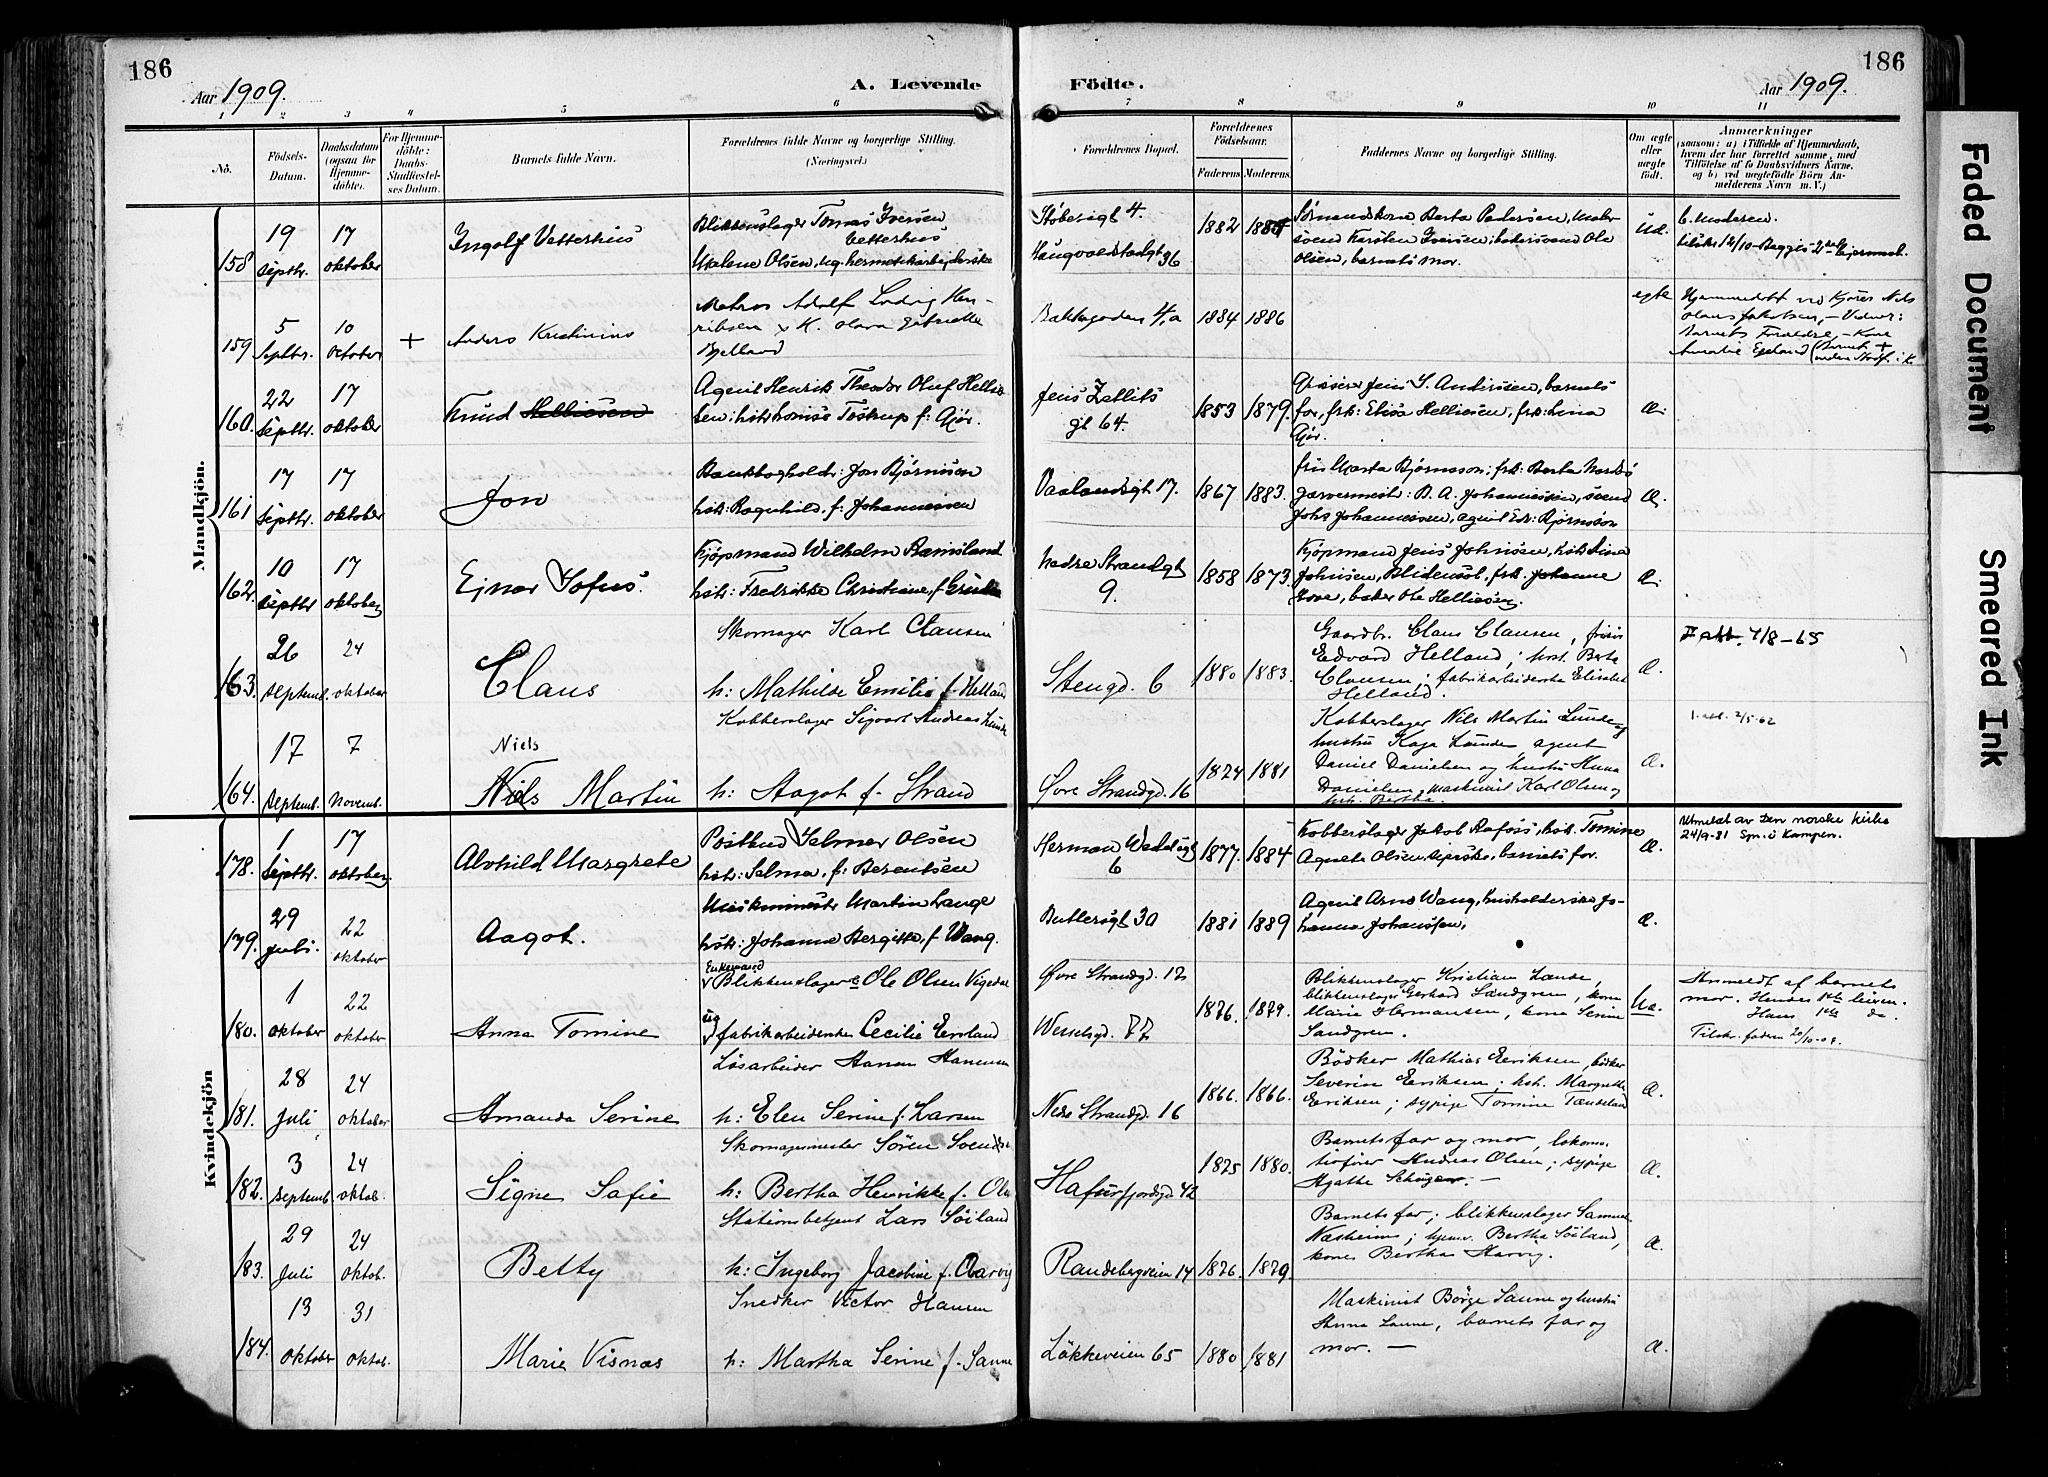 186
Aar 1909.
A. Levende
Födte.
186
Aar 1909.
1 2 3 4 5 6 7 8 9 10 11
No.
Födsels-
Datum.
Daabsdatum
(ogsaa for
Hjemme-
döbte).
For Hjemme-
döbte:
Daabs-
Stadfæstel-
ses Datum.
Barnets fulde Navn.
Forældrenes fulde Navne og borgerlige Stilling.
(Næringsvei.)
Forældrenes Bopæl.
Forældrenes
Födselsaar.
Faderens. Moderens.
Faddernes Navne og borgerlige Stilling.
Om ægte
eller
uægte
födt.
Anmærkninger
(saasom: a) i Tilfælde af Hjemmedaab,
hvem der har forrettet samme, med
Tilföielse af to Daabsvidners Navne,
og b) ved uægtefödte Börn An-
melderens Navn m. V.)
Mandkjön.
158 19 septbr. 17 oktober
Ingolf Vetterhus
Blikkenslager Tomas Iversen
Vetterhus
Malene Olsen, ug. hermetikarbeiderske
Støberigt 4.
Haugvaldstadgt 36
1882
Sømandskone Berta Pedersen, maler-
svend Karsten Iversen, bakersvend Ole
Olsen, barnets mor.
Uæ.
159 5 Septbr. 10 October +
Anders Kristinius
Matros Adolf Ludvig Hen-
riksen & K. Olava Gabrielle
Bjelland
Bakkegaden 4a
1884 1886
egte
Hjemmedøbt ved Kjøver Nils
Olaus Jakobsen, - Vidner:
Barnets Forældre, - Kone
Amalie Egeland
160. 22 septbr. 17 oktober
Knud Helliesen
Agent Henrik Theodor Oluf Hellie-
sen, hstr Lovise Testrup f: Gjør.
Jens Zetlits
gt 64.
1853 1879.
Grosserer Jens S. Andersen, barnets
far, frk: Elisa Helliesen, frk: Lina
Gjør.
Æ.
161 17 septbr. 17 oktober
Jon
Bankbogholdr: Jon Bjørnson
hstr: Ragnhild, f: Johannessen
Vaalandsgt 17.
1867 1883.
frøis Marta Bjørnsson; frk: Berta Nordbø
garvermestr: B. A. Johannessen, svend
Johs Johannessen, agent Edv: Bjørnsson
Æ.
162. 10 septbr 17 oktober
Ejnar Sofus.
Kjøpmand Wilhelm Ramsland
hstr: Fredrikke Christiane, f.
Nedre Strandgt
9.
1858 1873.
Kjøpmand Jens Johnsen, hstr Lina
Johnsen, Blidensol, frk. Johanne
Hove, baker Ole Helliesen.
Æ.
163. 26 septemb. 24 oktober
Claus
Skomager Karl Clausen
h: Mathilde Emilie f. Helland
Stengd. 6
1880 1883.
Gaardbr. Claus Clausen, frisør
Edvard Helland; hust. Berte
Clausen; fabrikarbeiderske Elisabet
Helland.
Æ.
II att. 4/8-65
164. 17 septemb. 7 novemb.
Niels
Niels Martin
Kobberslager Sigvart Andreas Lunde
h: Aagot f. Strand
Øvre Strandgd. 16
1874 1881
Kobberslager Nils Martin Lunde og
hustru Kaja Lunde agent
Daniel Danielsen og hustru Anna
Danielsen, maskinist Karl Olsen og
hst. Bertha.
Æ.
1. att. 2/5-62
Kvindekjön
178. 1 septbr. 17 oktober
Alvhild Margrete
Postbud Selmer Olsen
hstr: Selma, f: Berentsen
Herman Wedelsgt
6
1877. 1884
Kobberslager Jakob Rafoss, hstr. Tomine
Agnete Olsen, barnets far.
Æ.
Utmeldt av Den norske kirke
24/9-81 Spr. i Kampen.
179. 29 juli. 22 oktober
Aagot.
Maskinmestr Martin Lange
hstr: Johanne Bergitte, f Wang.
Buttersgt 30
1881 1889
Agent Arne Wang, husholderske Jo-
hanna Johanssen.
Æ.
180. 1 oktober 22 oktober
Anna Tomine
Enkemand
Blikkenslager Ole Olsen Vigedal
ug
fabrikarbeiderske Cecilie Ersland
Øvre Strandgd. 17
Wesselsgd. 77
1876. 1879.
Blikkenslager Kristian Lande,
blikkenslager Gerhard Sandgren, kone
Marie Hermansen, kone Serine
Sandgren.
Uæ.
Anmeldt af barnets
mor. Hendes 1ste leierm.
Hans 1ste do.
Tilskr. faderen 20/10-09.
181. 28 juli 24 oktober
Amanda Serine
Løsarbeider Hanan Hanensen
h: Elen Serine f. Larsen
Nedre Strandgd. 16
1866. 1866.
Bødker Mathias Eriksen, bødker
Severin Eriksen; hst. Margrethe
Eriksen; sypige Tomine Tendeland
Æ.
182. 3 septemb. 24 oktob.
Signe Safie
Skomagermester Søren Svendsen
h: Bertha Henrikke f. Olsen
Hafursfjordgd 42
1875 1880.
Barnets far og mor, lokomo-
tivfører Andreas Olsen; sypige
Agathe
Æ.
183. 29 juli 24 oktob.
Betty
Stationsbetjent Lars Søiland
h: Ingeborg Jacobine f. Aarvig
Randebergveien 14
1876. 1879.
Barnets far; blikkenslager Samuel
Næsheim; hjemv. Bertha Søiland,
kone Bertha Harvig.
Æ.
184. 13 oktober 31 oktob.
Marie Visnæs
Snedker Victor Hansen
h: Martha Serine f. Sanne
Løkkeveien 65
1880 1881
Maskinist Børge Sanne og hustru
Anna Sanne, barnets far og
mor. -
Æ.
Faded Document
Smeared Ink